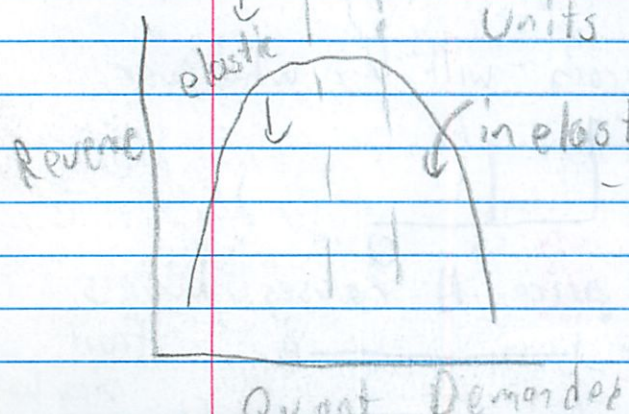 Units
elastic
inelast
Revenue
Quant Demanded